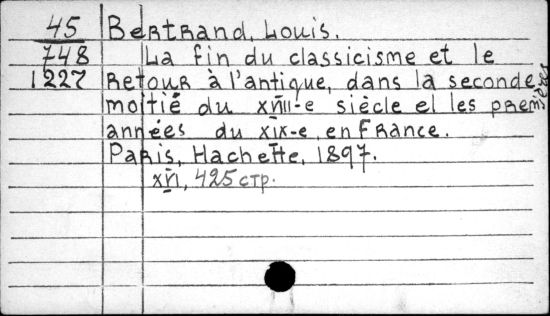 45 Bertrand, Louis.
748 La fin du classicisme et le
1227 Retour à l'antique, dans la seconde
moitié du XVIII-e siècle et les premières
années du XIX-e, en France.
Paris, Hachette, 1897.
XVI, 425 стр.